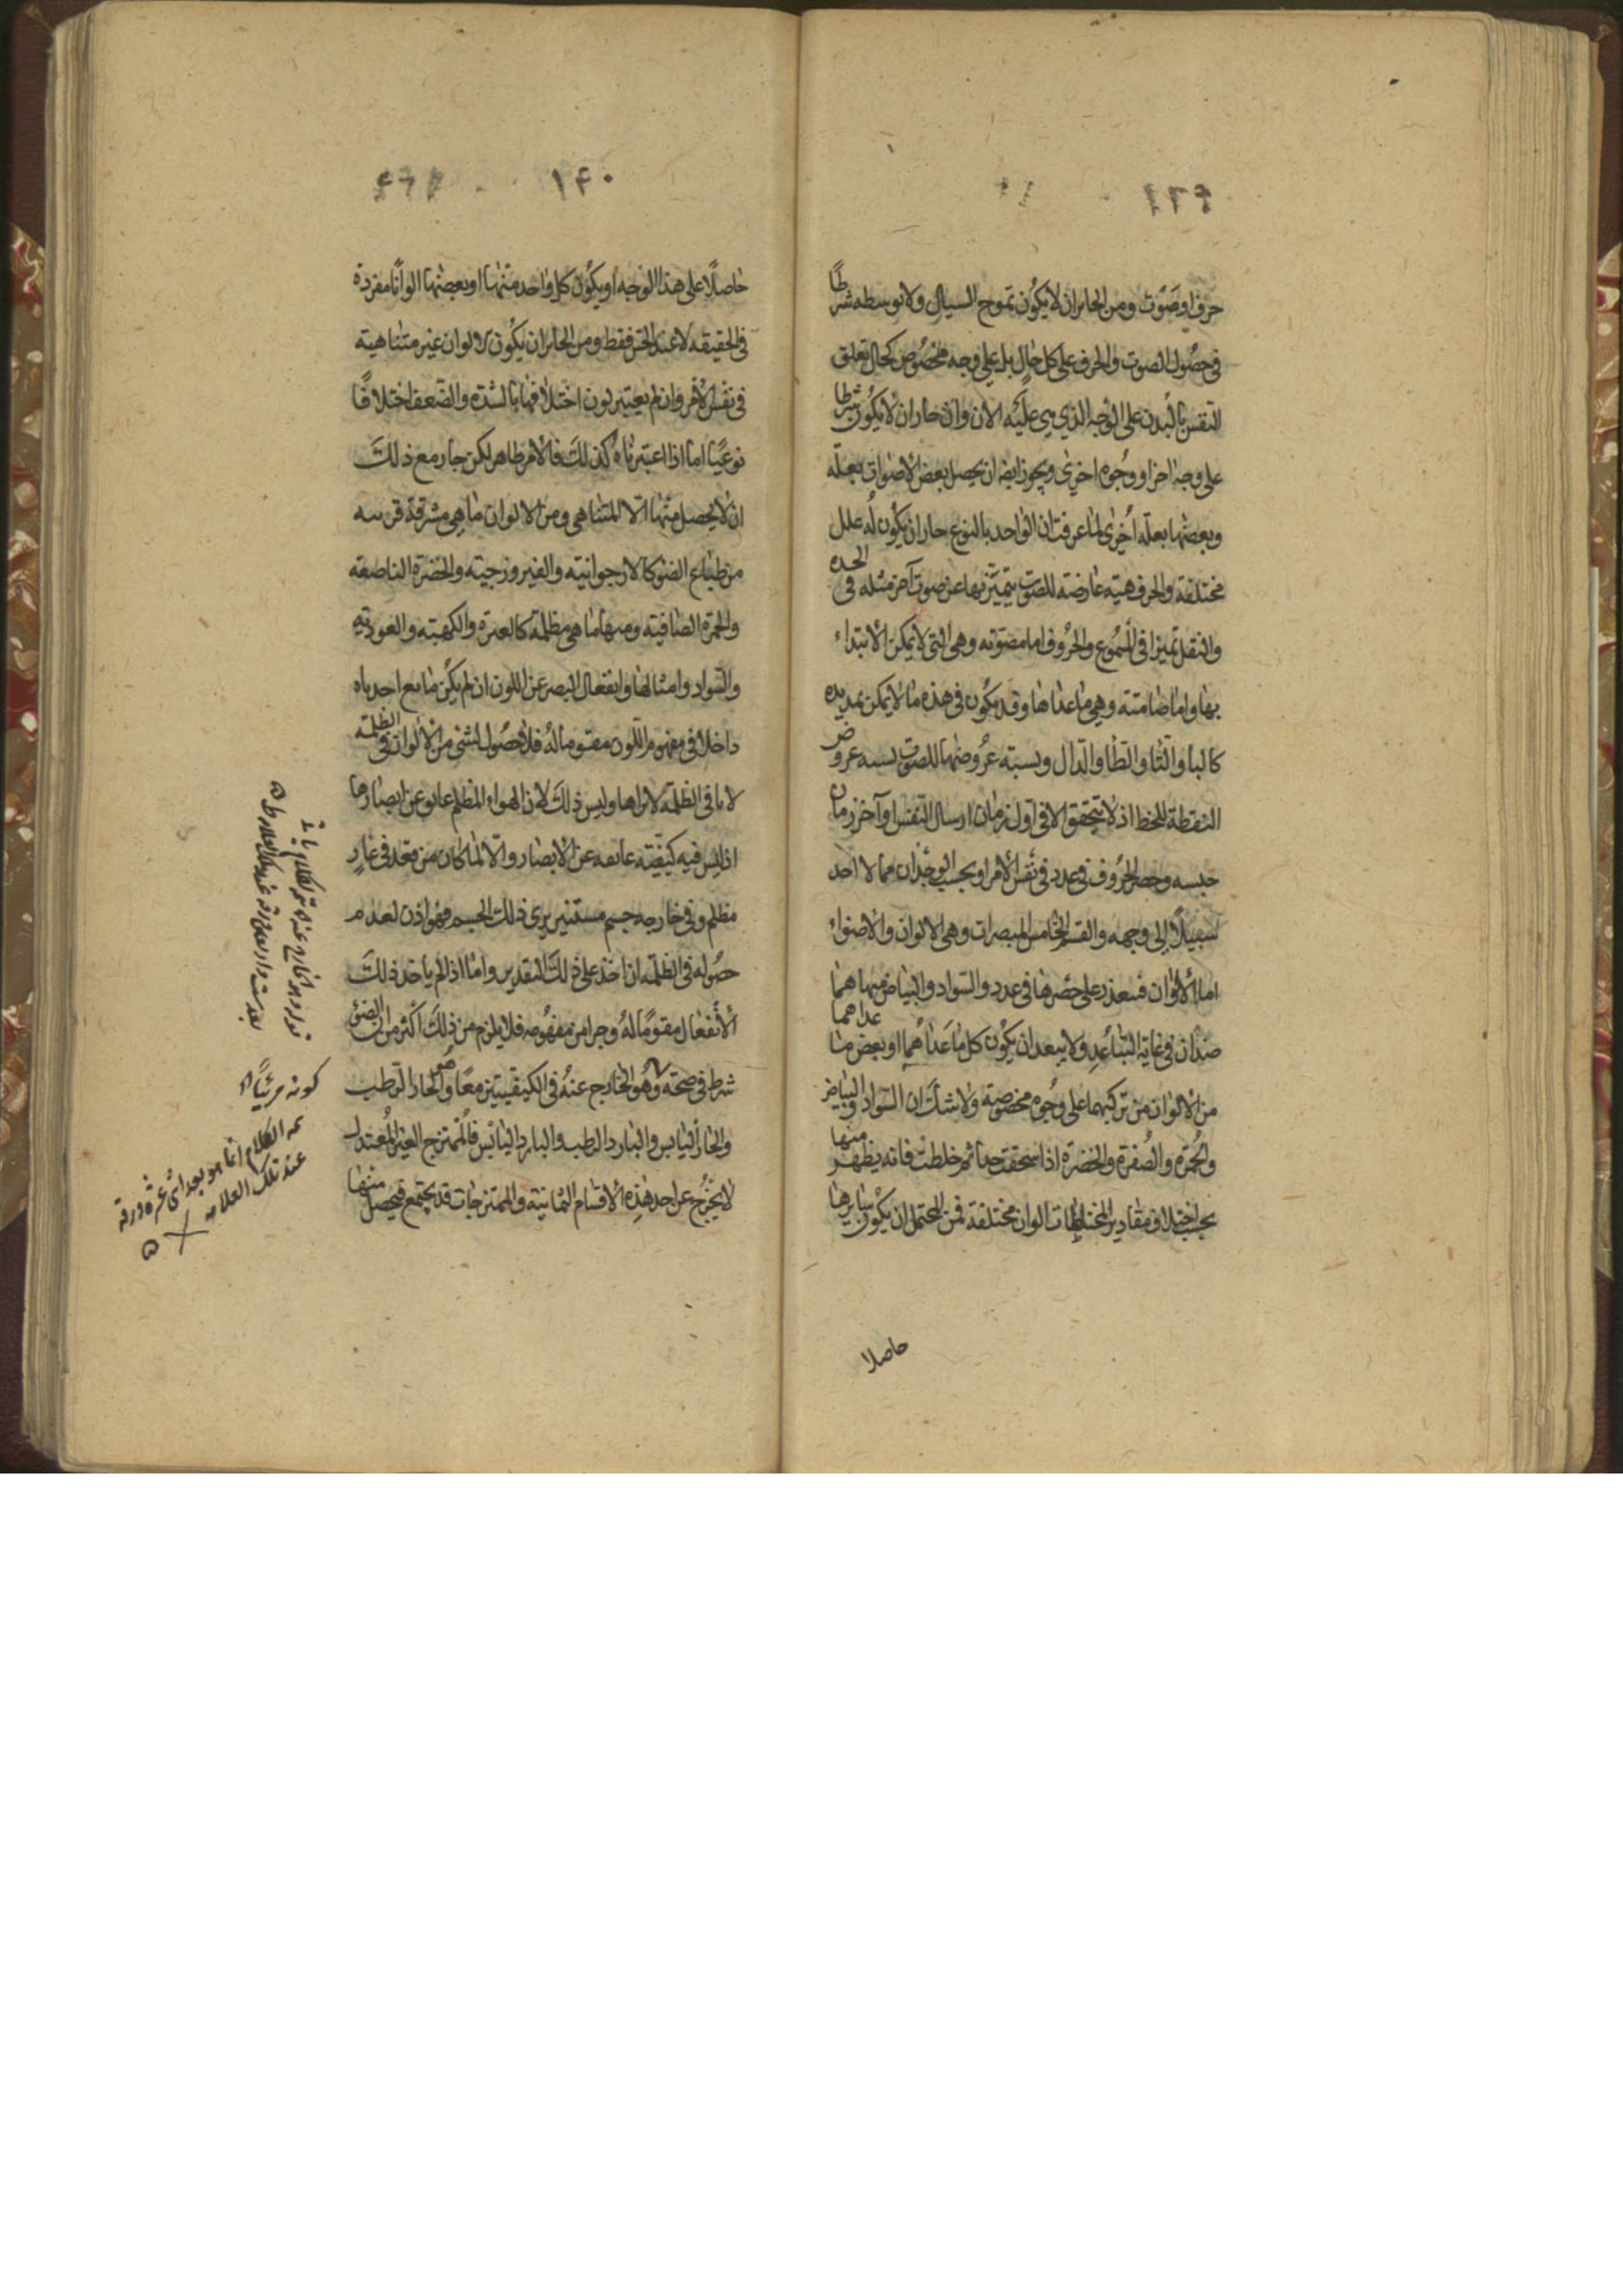 حرف او صوت ومن الجايز ان لا يكون تموج السيال ولا توسطه شرطًا
في حصول الصوت والحرف على كل حال بل على وجه مخصوص كحال تعلق
النفس بالبدن على الوجه الذي هي عليه الان وان جاز ان لا يكون شرطا
على وجه اخر او وجوه اخرى ويجوز ايضا ان يحصل بعض الاصوات بعلة
وبعضها بعلة اخرى لما عرفت ان الواحد بالنوع جاز ان يكون له علل
مختلفة والحرف هيئة عارضة للصوت يتميز بها عن صوت آخر مثله في الحدة
والثقل تميزا في المسموع والحروف اما مصوتة وهي التي لا يمكن الابتداء
بها واما صامتة وهي ما عداها وقد يكون في هذه ما لا يمكن تمديده
كالباء والتاء والطاء والدال ونسبة عروضها للصوت نسبة عروض
النقطة للخط اذ لا تتحقق الا في اول زمان ارسال النفس او آخر زمان
حبسه وحصر الحروف في عدد في نفس الامر او بحسب الوجدان مما لا اجد
سبيلا الى وجهه والقسم الخامس المبصرات وهي الالوان والاضواء
اما الالوان فيتعذر على حصرها في عدد والسواد والبياض منها هما
ضدان في غاية التباعد ولا يبعد ان يكون كل ما عداهما او بعض ما عداهما
من الالوان من تركبهما على وجوه مخصوصة ولا شك ان السواد والبياض
والحمرة والصفرة والخضرة اذا سحقت جدا ثم خلطت فانه يظهر منها
بحسب اختلاف مقادير المختلطات الوان مختلفة فمن المحتمل ان يكون سايرها
حاصلا
١٤٠
حاصلًا على هذا الوجه او يكون كل واحد منها او بعضها الوانًا مفردة
في الحقيقة لا عند الحس فقط ومن الجايز ان يكون الالوان غير متناهية
في نفس الامر وان لم يعتبر لون اختلافها بالشدة والضعف اختلافًا
نوعيًا اما اذا اعتبرناه كذلك فالامر ظاهر لكن جاز مع ذلك
ان لا يحصل منها الا المتناهي ومن الالوان ما هي مشرقة قريبة
من طباع الضوء كالارجوانية والفيروزجية والخضرة الناصعة
والحمرة الصافية ومنها ما هي مظلمة كالغبرة والكهبة والعودية
والسواد وامثالها وانفعال البصر عن اللون ان لم يكن مانع اخذناه
داخلا في مفهوم اللون مقوما له فلا حصول لشئ من الالوان في الظلمة
لانا في الظلمة لا نراها وليس ذلك لان الهواء المظلم عايق عن ابصارها
اذ ليس فيه كيفية عايقة عن الابصار والا لما كان من قعد في غار
مظلم وفي خارجه جسم مستنير يرى ذلك الجسم فهو اذن لعدم
حصوله في الظلمة ان اخذ على ذلك التقدير واما اذا لم ياخذ ذلك
الانفعال مقومًا له وجزا من مفهومه فلا يلزم من ذلك اكثر من ان الضوء
شرط في صحة وهو الخارج عنه في الكيفيتين معًا وهو الحار الرطب
والحار اليابس والبارد الرطب والبارد اليابس فالممتزج الغير المعتدل
لا يخرج عن احد هذه الاقسام الثمانية والممتزجات قد يجتمع فيحصل منها
كونه مرئيًا
الكلام انما هو بعد اثنى عشرة ورقة
عند تلك العلامة